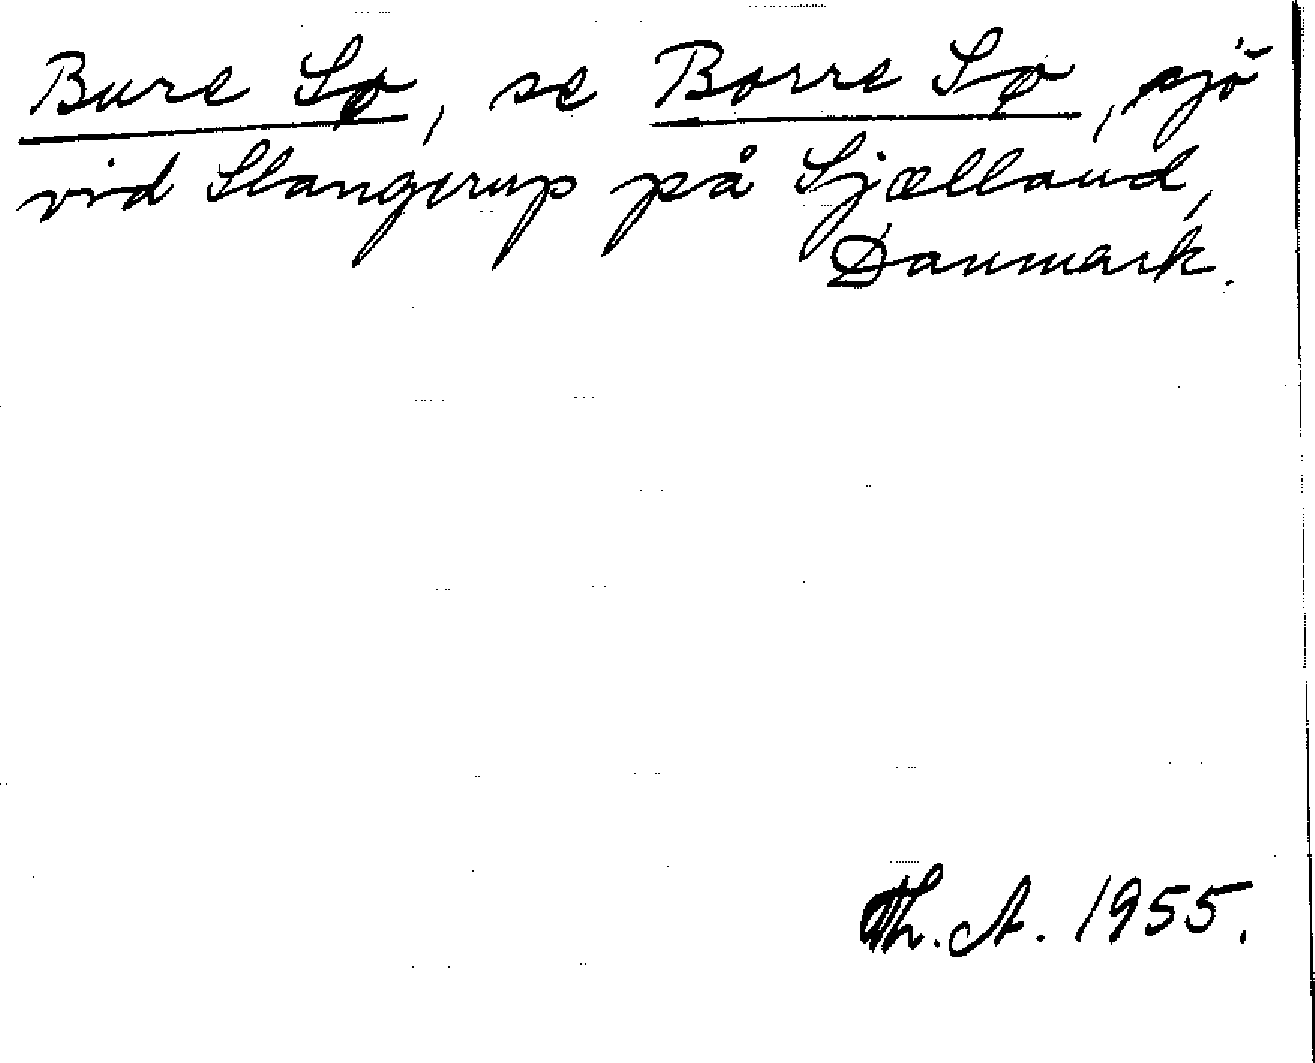 Bure Sø, se Borre Sø, sjö
vid Slangerup på Sjælland,
Danmark.
Th. A. 1955.